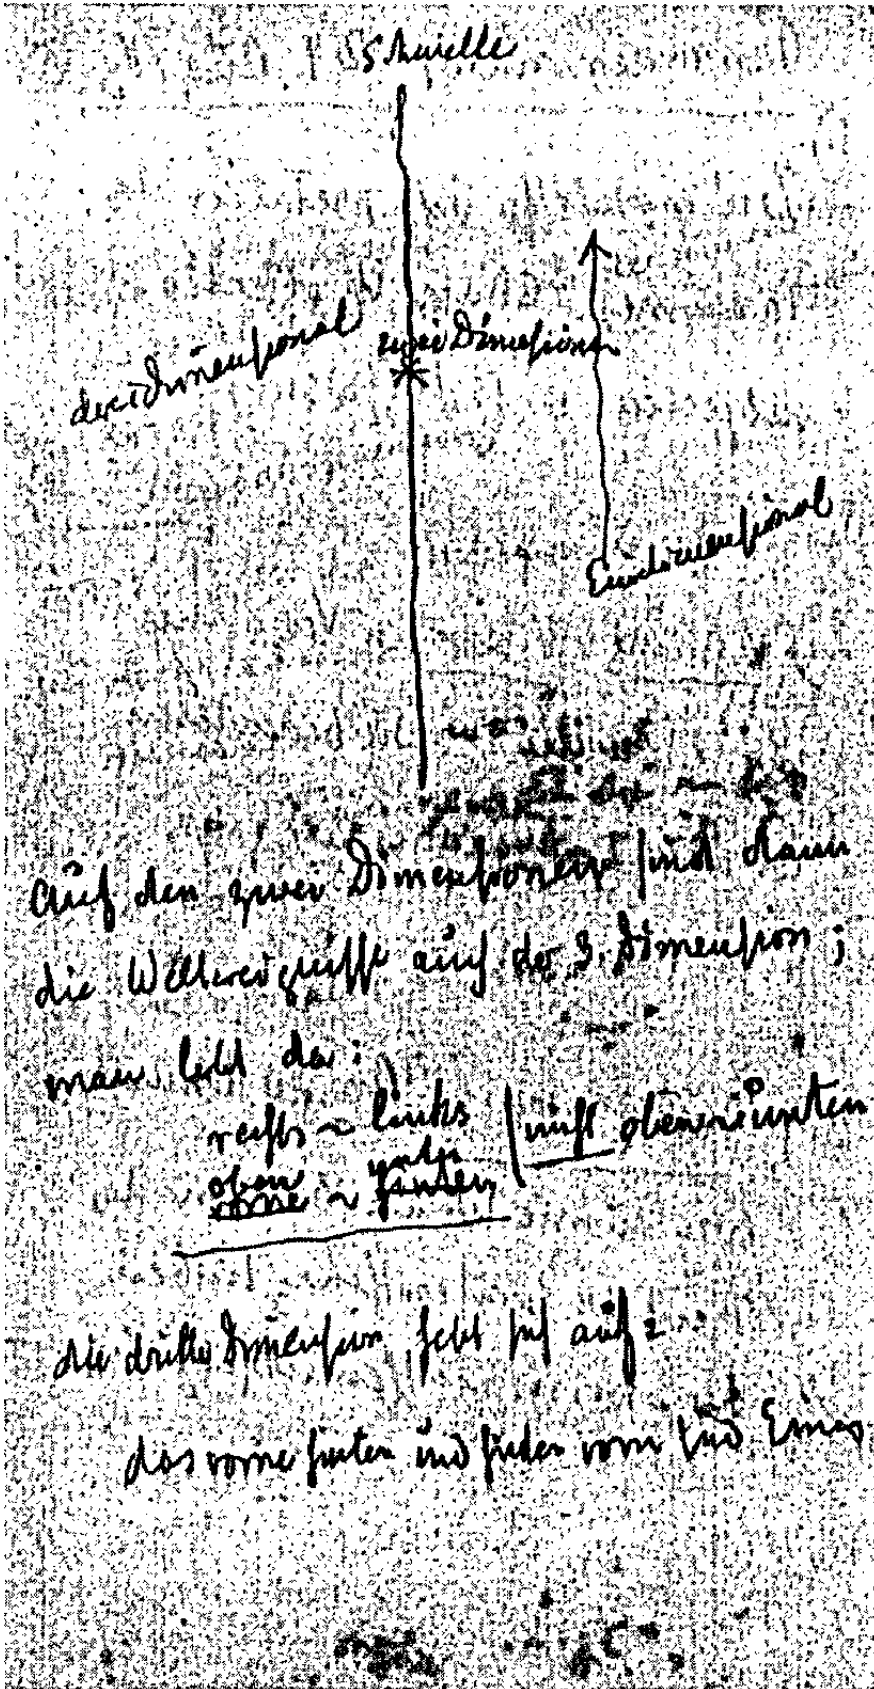 Schwelle
dreidimensional
zwei Dimensionen
Eindimensional
Auf den zwei Dimensionen sind dann
die Weltereignisse auch der 3. Dimension;
man lebt da:
rechts ~ links
oben unten
vorne ~ hinten
nicht oben unten
die dritte Dimension hebt sich auf:
das vorne hinten und hinten vorn sind Eines